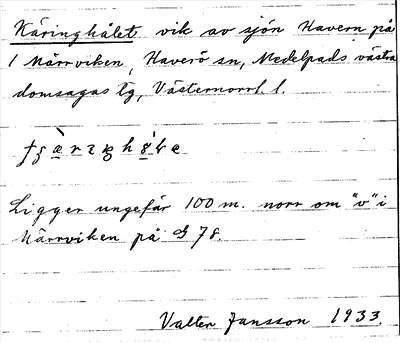 Käringhålet vik av sjön Havern på
1 Närrviken, Haverö sn, Medelpads västra
domsagas tg, Västernorrl. l.
Ligger ungefär 100 m. norr om "v" i
Närrviken på G 78.
Valter Jansson 1933.